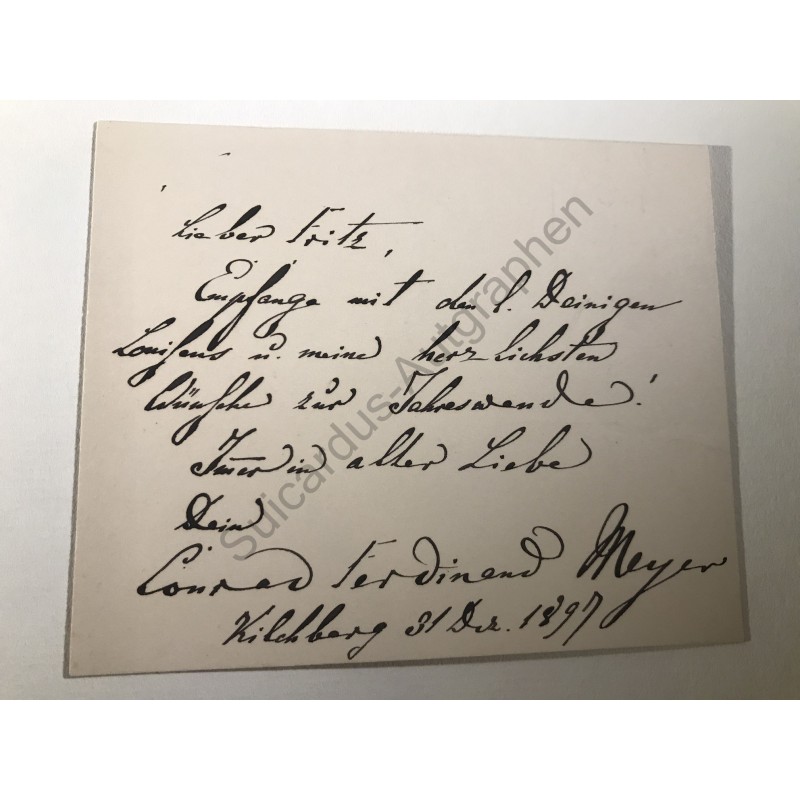 Lieber Fritz,
Empfange mit den l. Deinigen
Louisens u. meine herzlichsten
Wünsche zur Jahreswende!
Im̅er in alter Liebe
Dein
Conrad Ferdinand Meyer
Kilchberg 31 Dez. 1897
Suicardus-Autgraphen